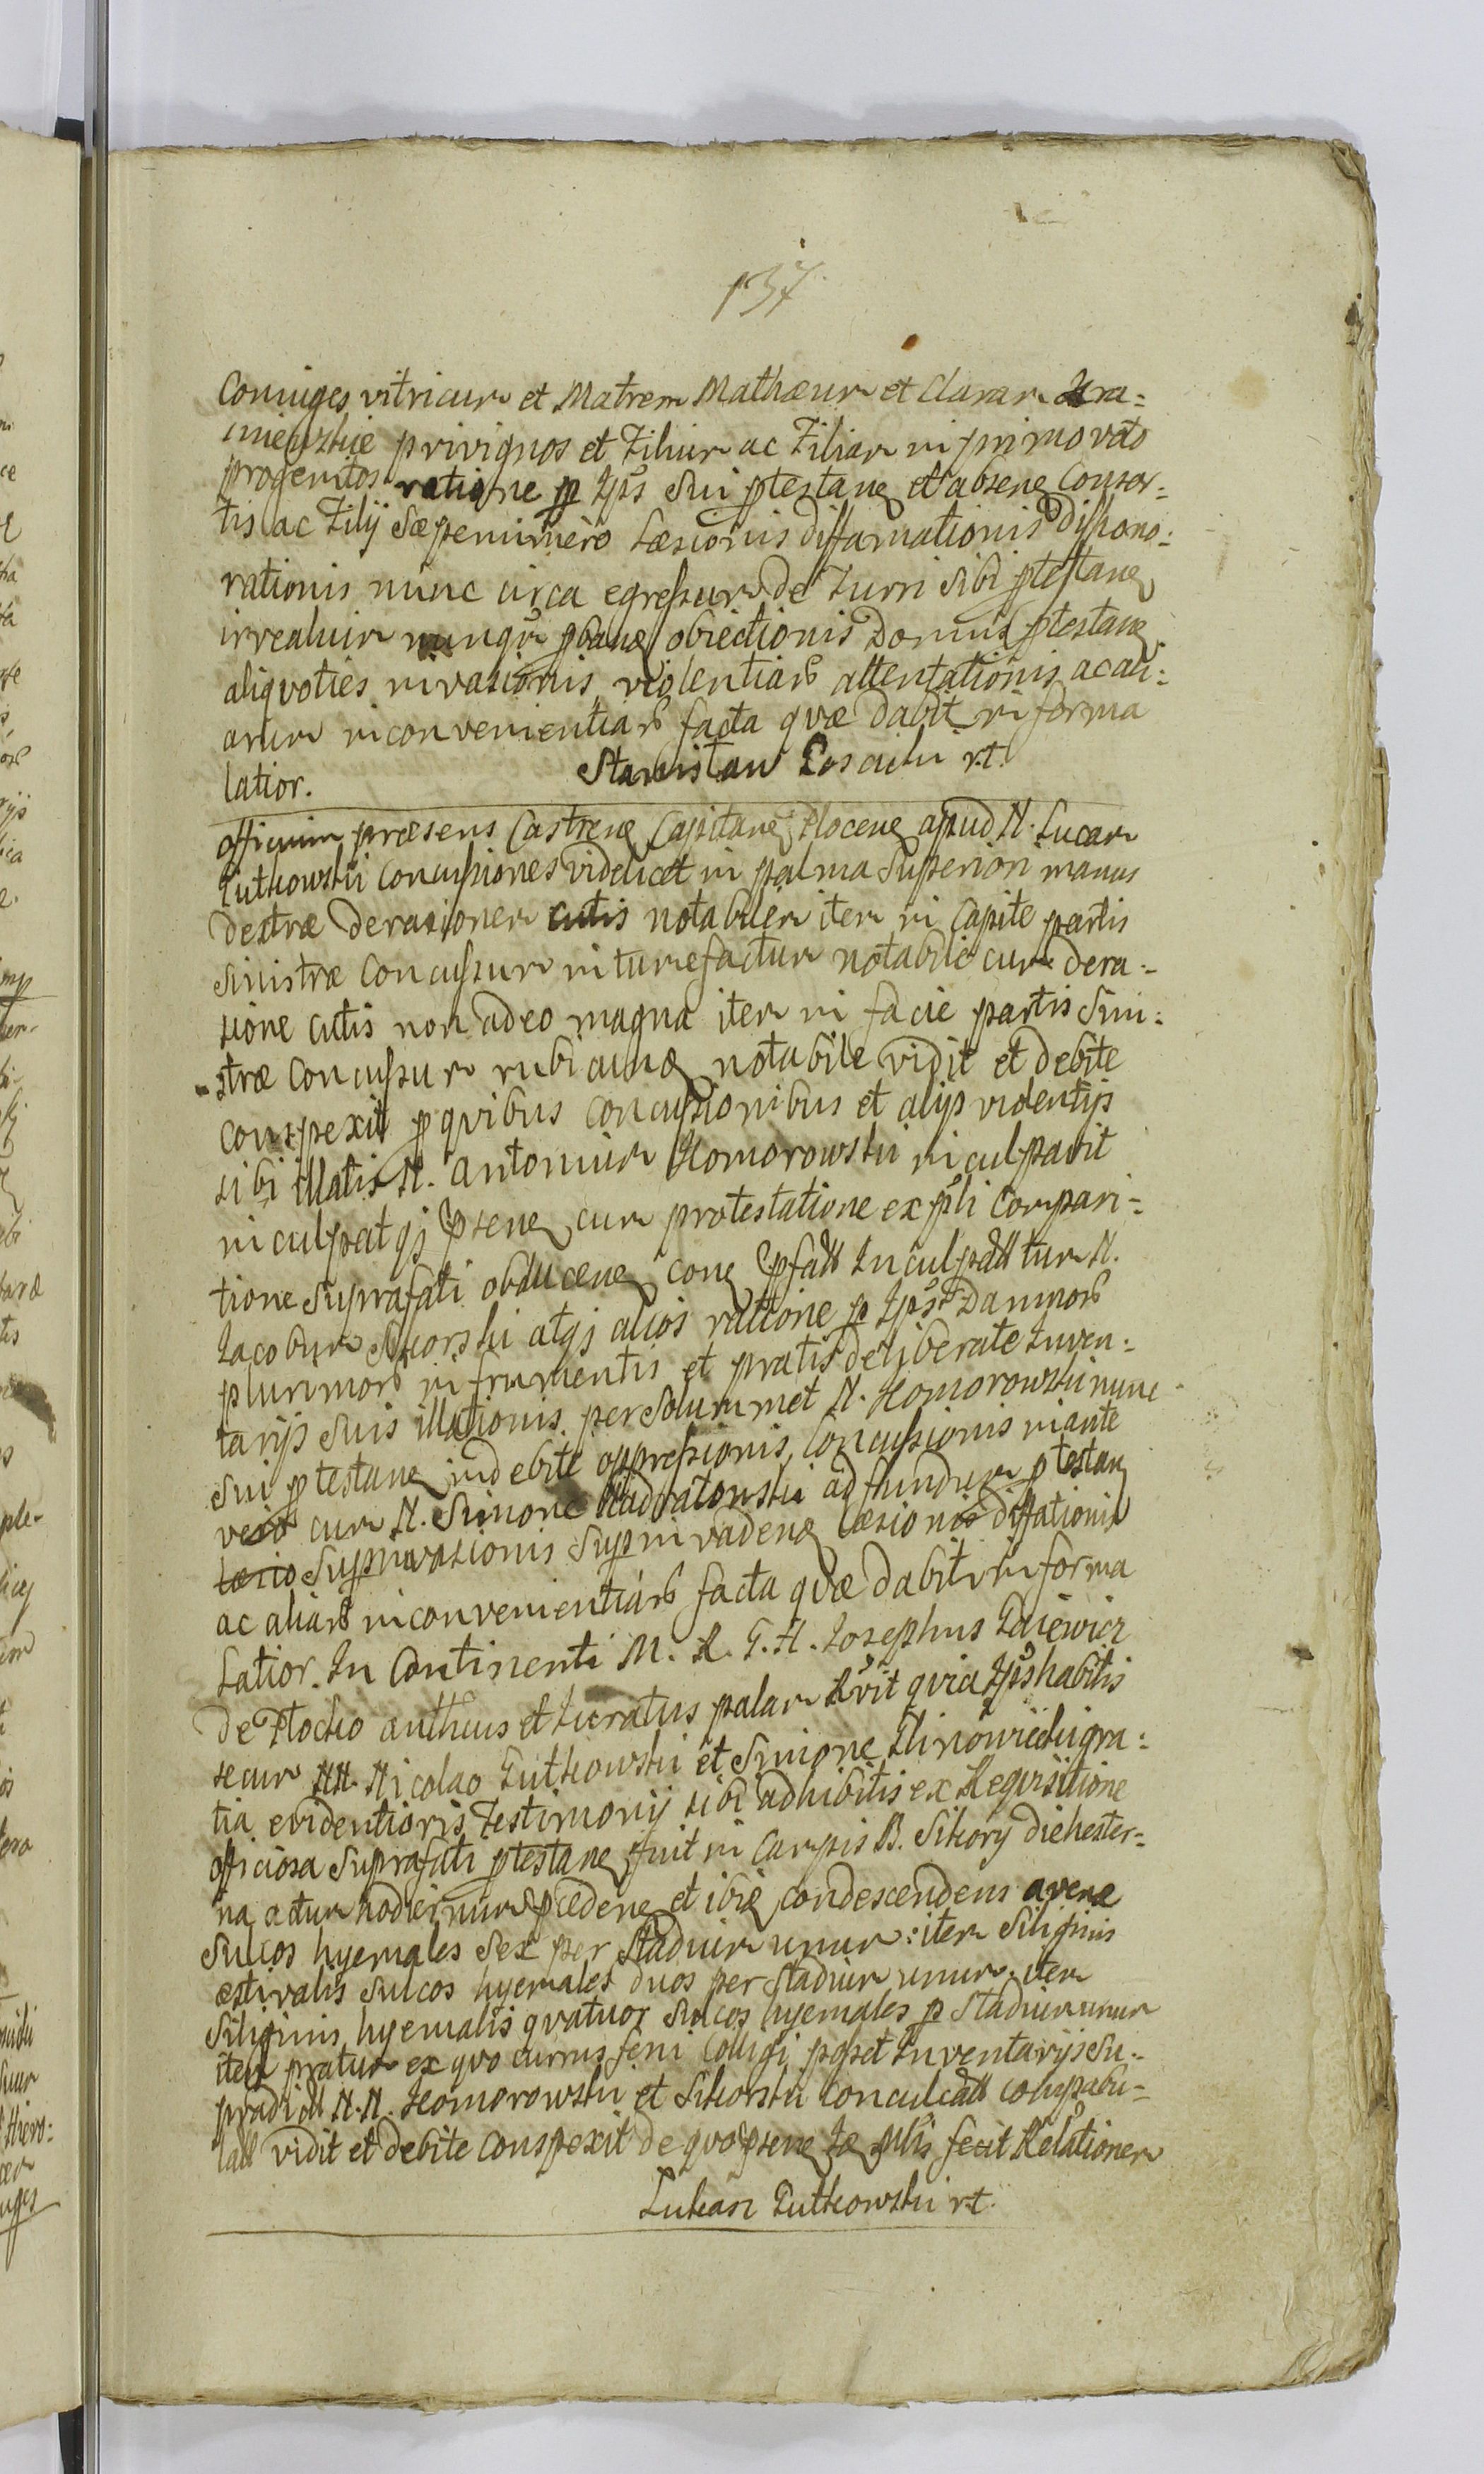 137
Coniuges vitricum et Matrem Mathæum et Claram Kra=
privignos et Filium ac Filiam in primo voto
progenitos ratione p Ips Sui ptestane et absene Consor=
tis ac Filij Sæpenumerò Læsionis diffamationis Dishono=
rationis nunc circa egressum de Turri sibi ptestane
nunqm pbane obiectionis Domus ptestane
aliqvoties invasionis violentiarb attentationis ac ali=
arum inconvenientiarb facta qvæ dabit in forma
latior. Stanisław rt.
Officium præsens Castrene Capitane Plocene apud N. Lucam
Lutkowski Concussiones videlicet in palma Superiori manus
dextræ derasionem cutis notabilem item in Capite partis
Sinistræ Concussum intumefactum notabile cum dera=
sione cutis non adeo magna item in facie partis Sini=
stræ Concussum rubicune notabile vidit et debite
conspexit p qvibus concussionibus et alijs videntijs
sibi illatis N. Antonium Komorowski inculpavit
inculpatqj psene cum protestatione ex psli Compari=
tione Suprafati obducene cone pfatt Inculpatt tum N.
Iacobum Sikorski atqj alios ratione p Ips Damnorb
plurimorb in frumentis et pratis deliberate Inven=
tarijs suis illationis per Solummet N. Komorowski nunc
Sui ptestane indebite oppressionis, Concussionis inante
vero cum N. Simone ad fundum ptestane
læsio Supinvasionis Supinvadene læsionis diffationis
ac aliarb inconvenientiarb facta qvæ dabit in forma
Latior. In Continenti M. R. G. H. Iosephus
De Płocko authcus et Iuratus palam Rvit qvia Ips habitis
secum NN. Nicolao Lutkowski et Simone gra=
tia evidentioris Testimonij sibi adhibitis ex Reqvisitione
officiosa Suprafati ptestane fuit in Campis B. Sikory die hester=
na actum hodiernum pcedene et ibie condescendens avenæ
Sulcos hyemales Sex per Stadium unum: item Siliginis
æstivalis Sulcos hyemales duos per Stadium unum. item
Siliginis hyemalis qvatuor Sulcos hyemales p Stadium unum
item pratum ex qvo currus feni Colligi posset Inventarijs Su=
pradictt N.N. Komorowski et Sikorski conculcatt compabu=
latt vidit et debite Conspexit de qvo psene fecit Relationem
Lukasz Lutkowski rt.